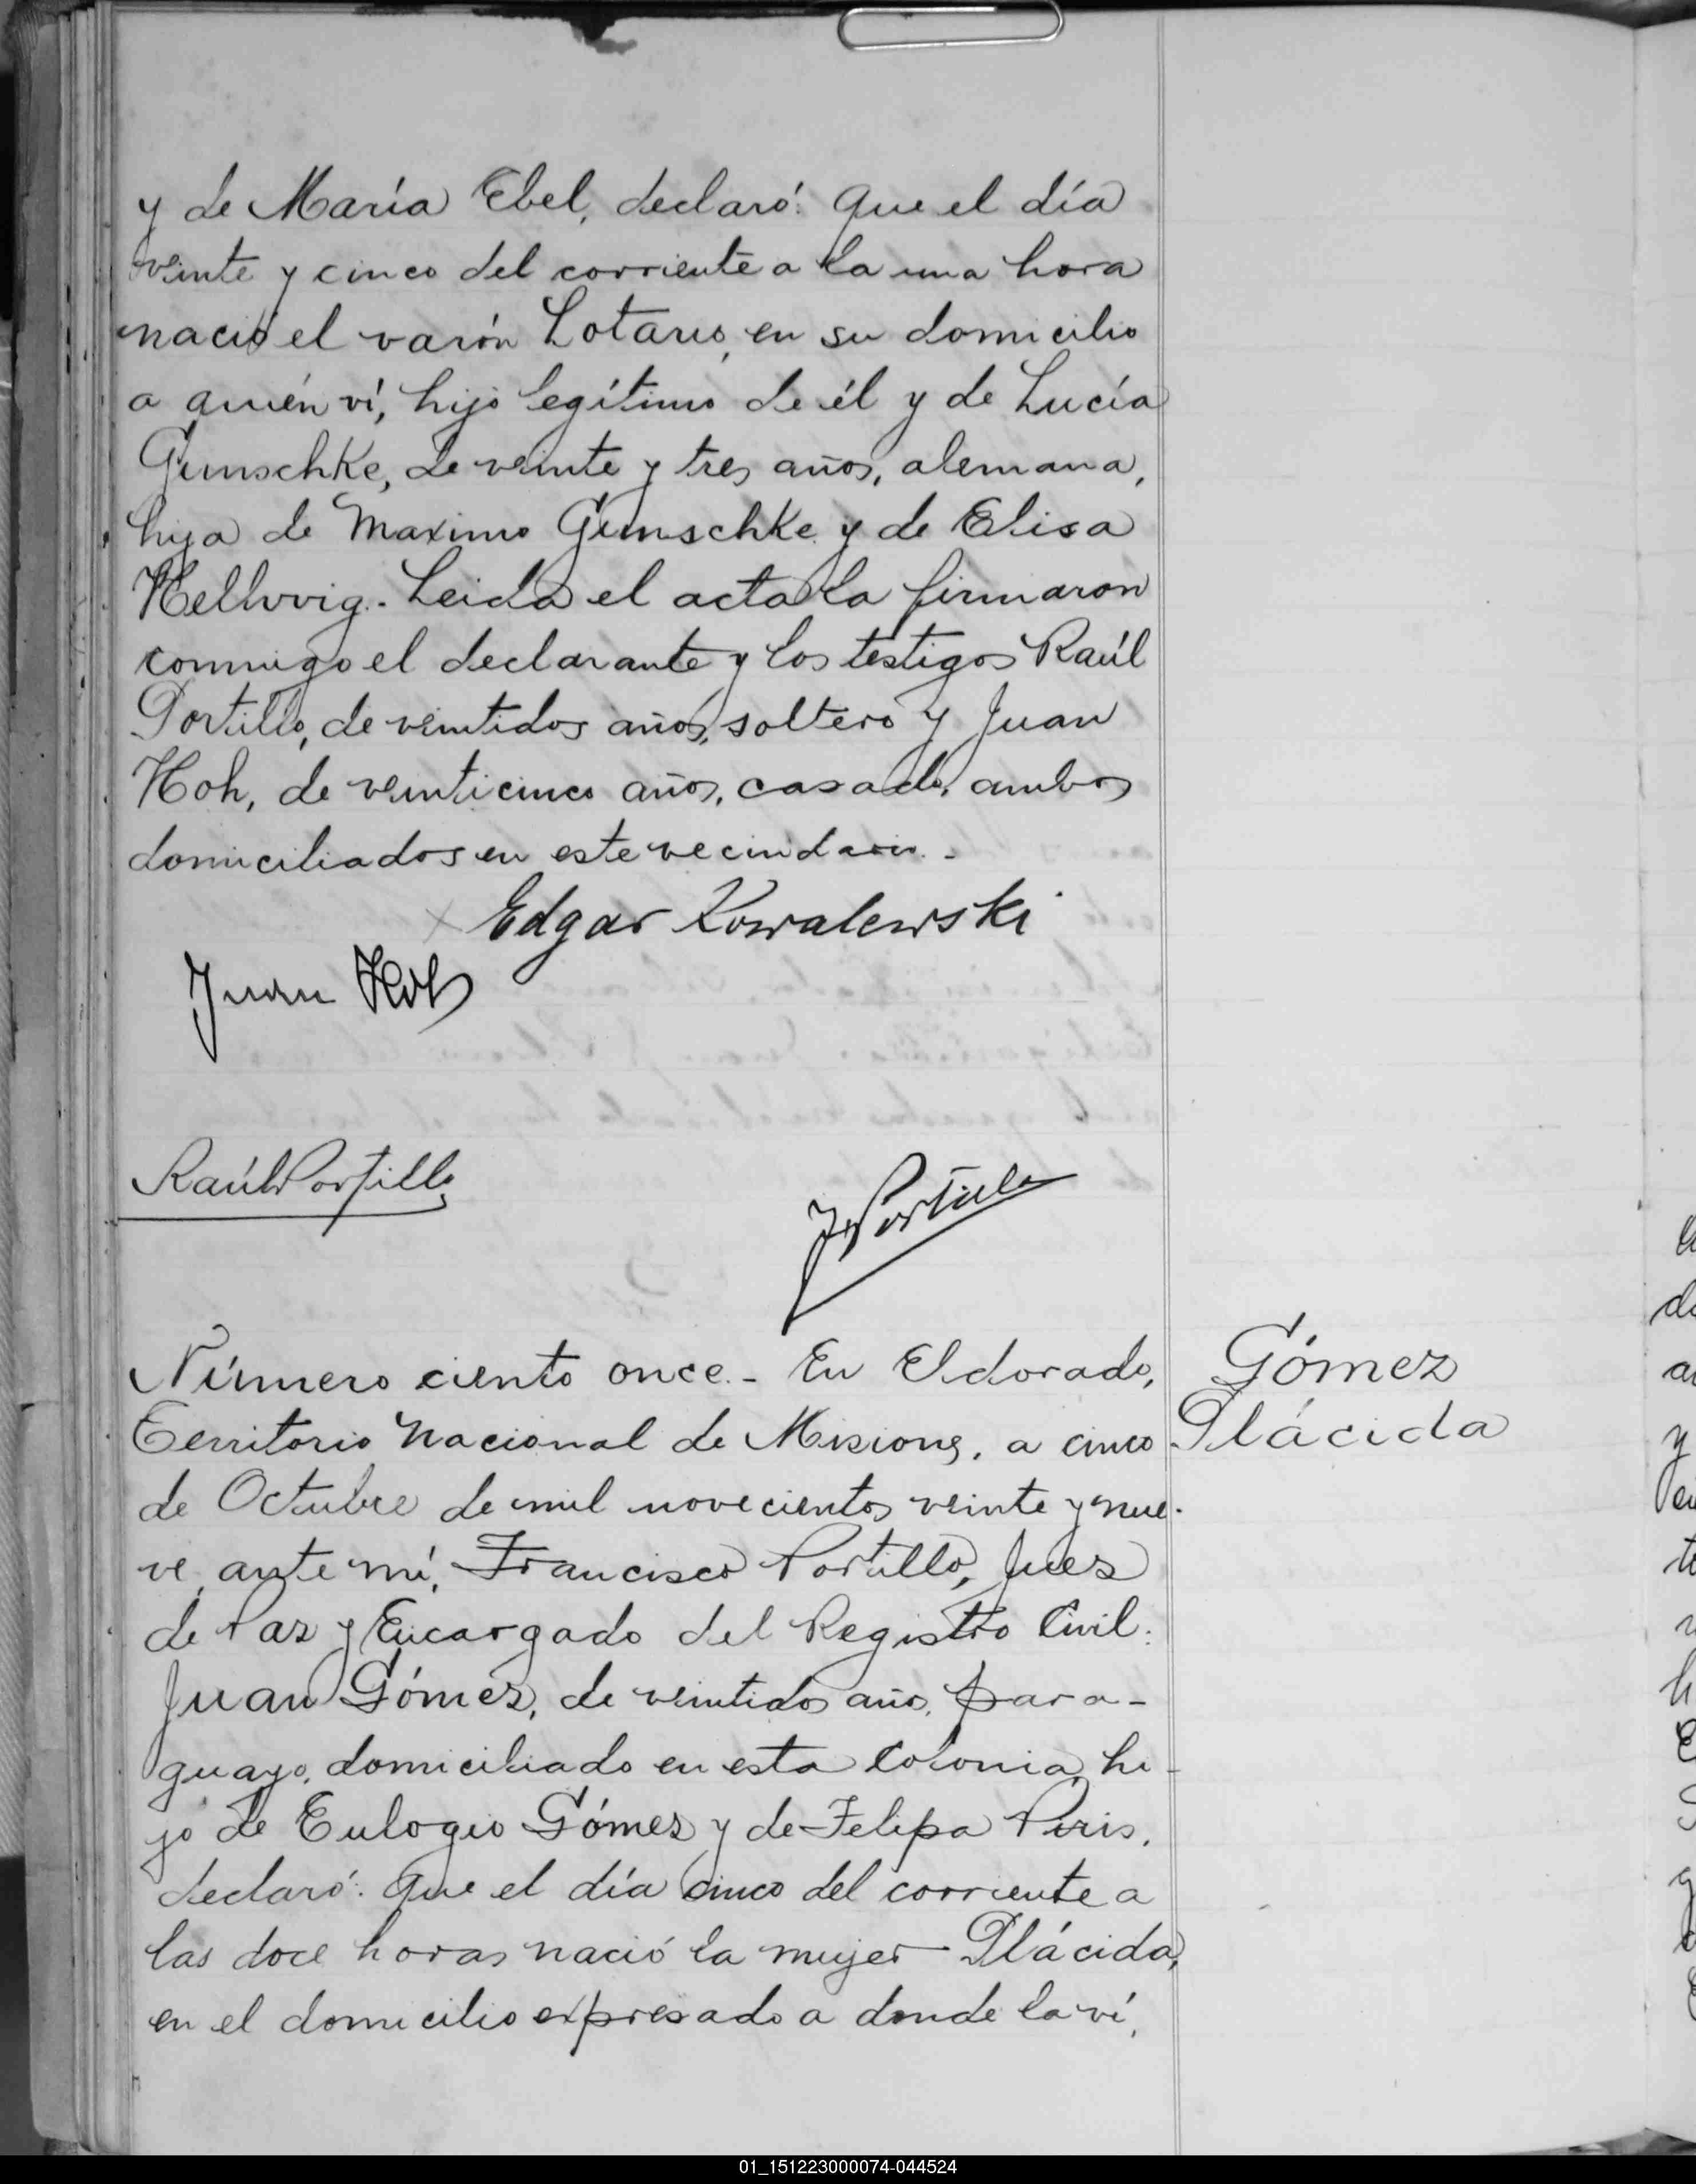 y de María Ebel, declaró: Que el día
veinte y cinco del corriente a la una hora
nació el varón Lotario, en su domicilio
a quién ví, hijo legítimo de él y de Lucía
Gunschke, de veinte y tres años, alemana,
hija de Maximo Gunschke y de Elisa
Hellwig.- Leida el acta la firmaron
conmigo el declarante y los testigos Raúl
Portillo, de veintidos años, soltero y Juan
Hoh, de veinticinco años, casado, ambos
domiciliados en este vecindario.-
x Edgar Kowalewski
Juan Hoh
Raúl Portillo
F Portillo
Número ciento once.- En Eldorado,
Territorio Nacional de Misiones, a cinco
de Octubre de mil novecientos veinte y nue-
ve, ante mí, Francisco Portillo, Juez
de Paz y Encargado del Registro Civil:
Juan Gómez, de veintidos años, para-
guayo, domiciliado en esta Colonia, hi-
jo de Eulogio Gómez y de Felipa Piris,
declaró: Que el día cinco del corriente a
las doce horas nació la mujer Plácida,
en el domicilio expresado a donde la ví,
Gómez
Plácida
01_151223000074-044524